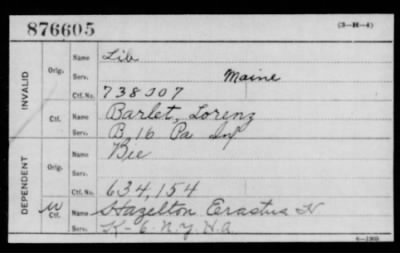 876605 (3-H-4)
INVALID
Orig. Name Lib
Serv. Maine
Ctf. No. 738307
Ctf. Name Barlet, Lorenz
Serv. B, 16 Pa Inf
DEPENDENT
Orig. Name Bec
Serv.
Ctf. No. 634,154
W Ctf. Name Hazelton Erastus N
Serv. K-6. N.Y. H.A
6-1903